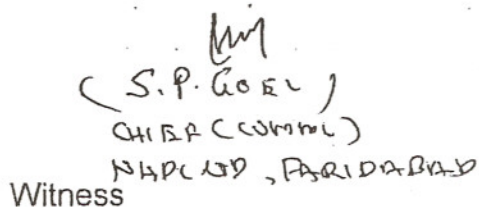 (S.P. GOEL)
CHIEF (COMML)
NHPC LTD, FARIDABAD
Witness